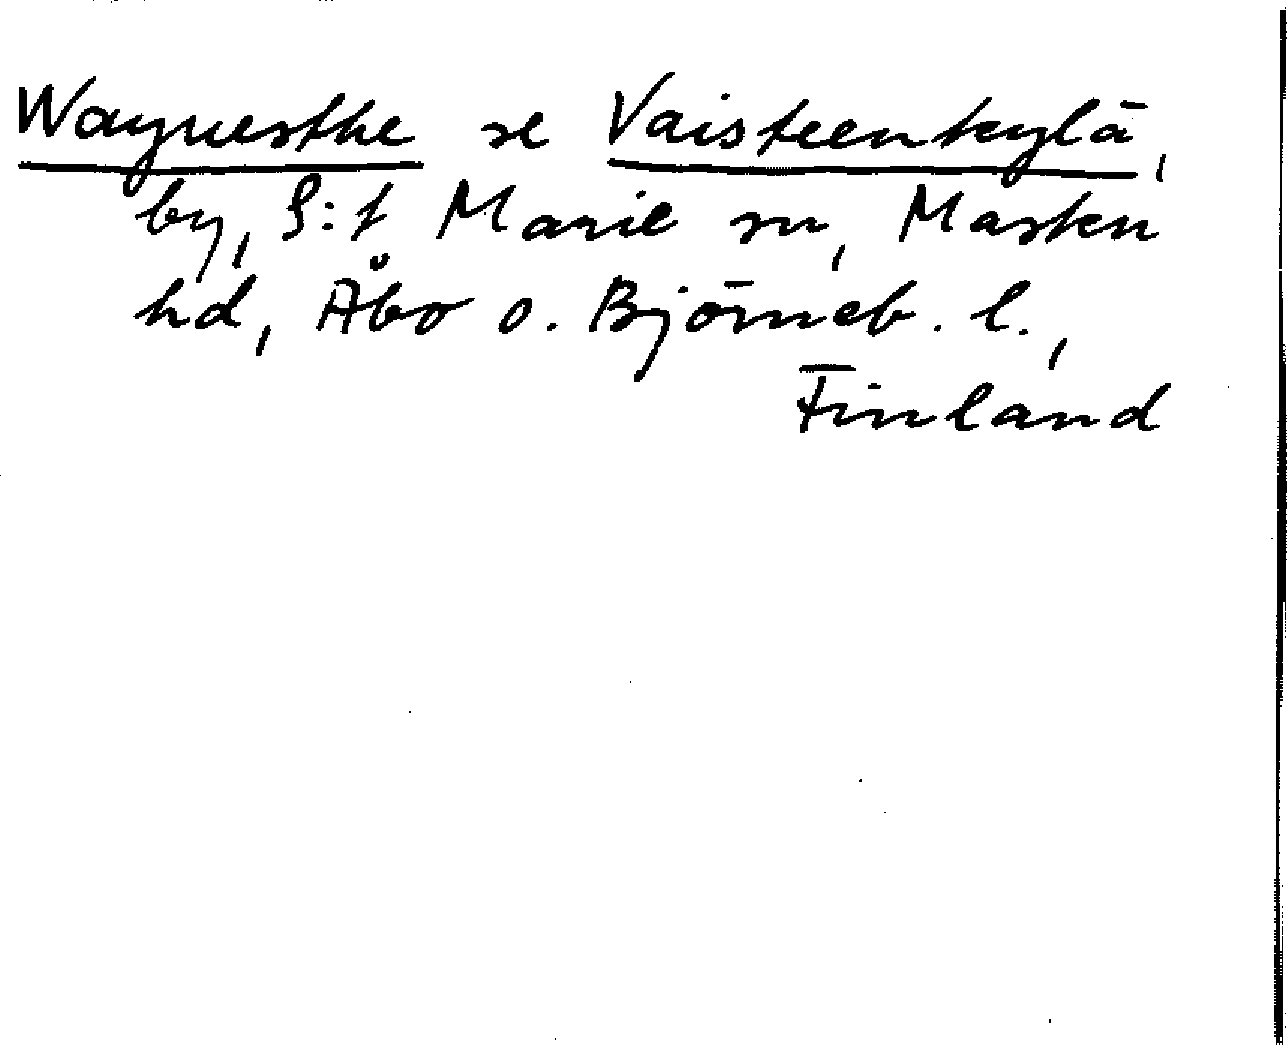 Waynesthe se Vaisteenkylä,
by, S:t Marie sn, Masku
hd, Åbo o. Björneb. l.,
Finland